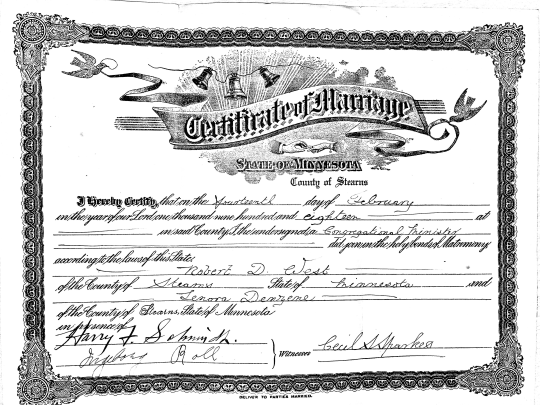 Certificate of Marriage
STATE OF MINNESOTA
County of Stearns
I Hereby Certify, that on the fourteenth day of February
in the year of our Lord one thousand nine hundred and eighteen at
in said County I, the undersigned a Congregational Minister
did join in the holy bonds of Matrimony
according to the laws of this State
Robert D. West
of the County of Stearns State of Minnesota and
Lenora
of the County of Stearns, State of Minnesota
in presence of
Harry F. Schmidt.
Roll
Witnesses
Cecil S Sparkes
DELIVER TO PARTIES MARRIED.